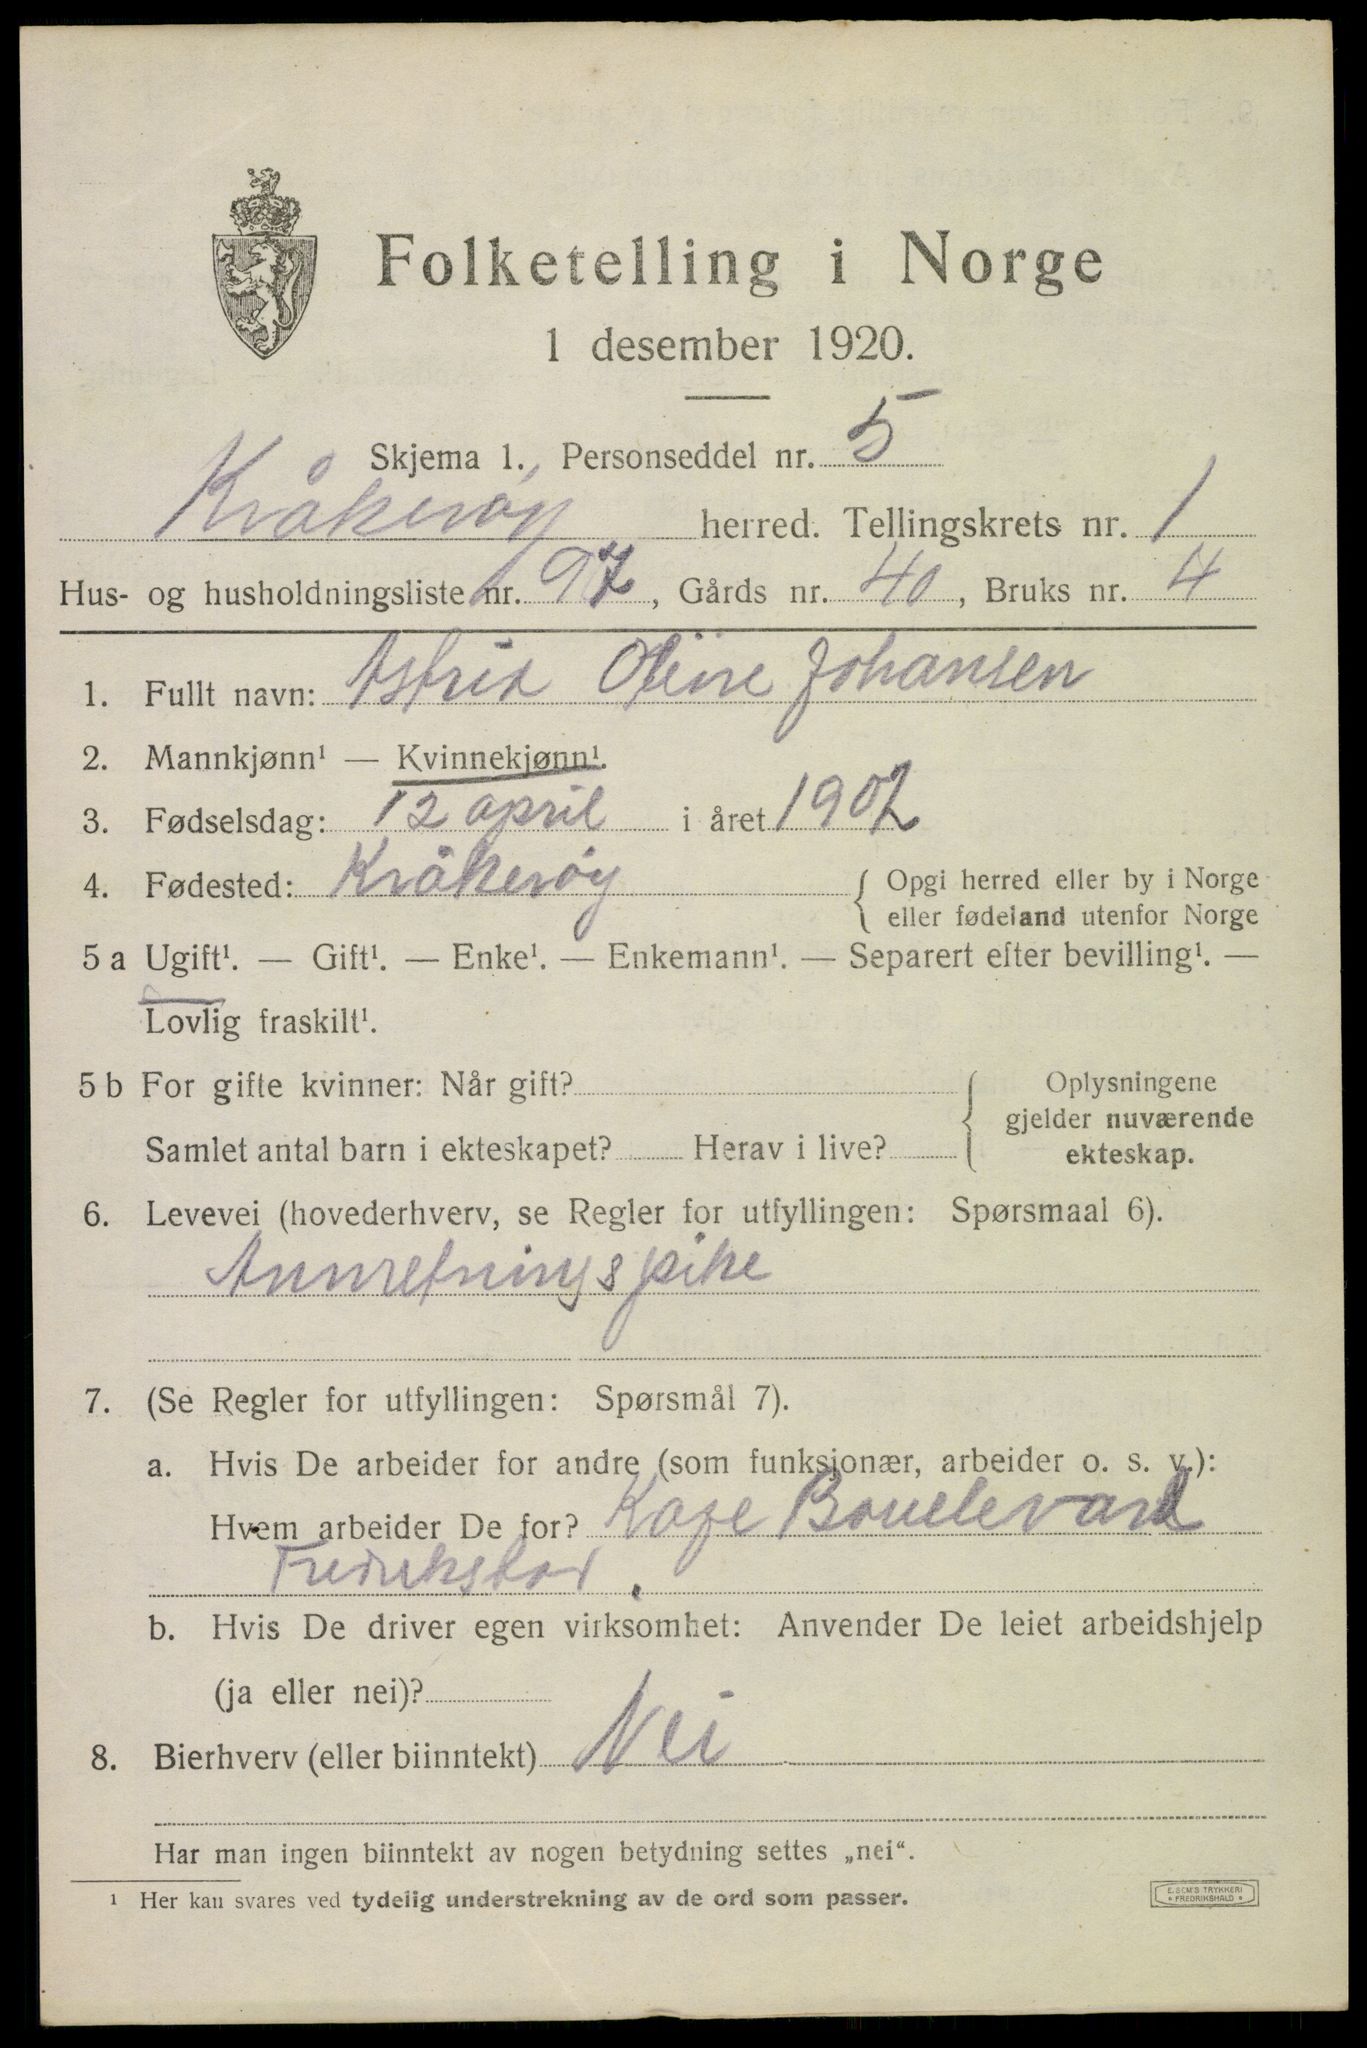 Folketelling i Norge
1 desember 1920.
Skjema 1. Personseddel nr. 5
Kråkerøy herred. Tellingskrets nr. 1
Hus- og husholdningsliste nr. 97, Gårds nr. 40, Bruks nr. 4
1. Fullt navn: Astrid Oline Johansen
2. Mannkjønn¹ — Kvinnekjønn¹.
3. Fødselsdag: 12 april i året 1902
4. Fødested: Kråkerøy { Opgi herred eller by i Norge
eller fødeland utenfor Norge
5 a Ugift¹. — Gift¹. — Enke¹. — Enkemann¹. — Separert efter bevilling¹. —
Lovlig fraskilt¹.
5 b For gifte kvinner: Når gift?
Samlet antal barn i ekteskapet? Herav i live?
{ Oplysningene
gjelder nuværende
ekteskap.
6. Levevei (hovederhverv, se Regler for utfyllingen: Spørsmaal 6).
Annretningspike
7. (Se Regler for utfyllingen: Spørsmål 7).
a. Hvis De arbeider for andre (som funksjonær, arbeider o. s. v.):
Hvem arbeider De for? Kafe Bouelevard
Fredrikstad.
b. Hvis De driver egen virksomhet: Anvender De leiet arbeidshjelp
(ja eller nei)?
8. Bierhverv (eller biinntekt) Nei
Har man ingen biinntekt av nogen betydning settes „nei“.
¹ Her kan svares ved tydelig understrekning av de ord som passer.
E. SEM'S TRYKKERI
• FREDRIKSHALD •